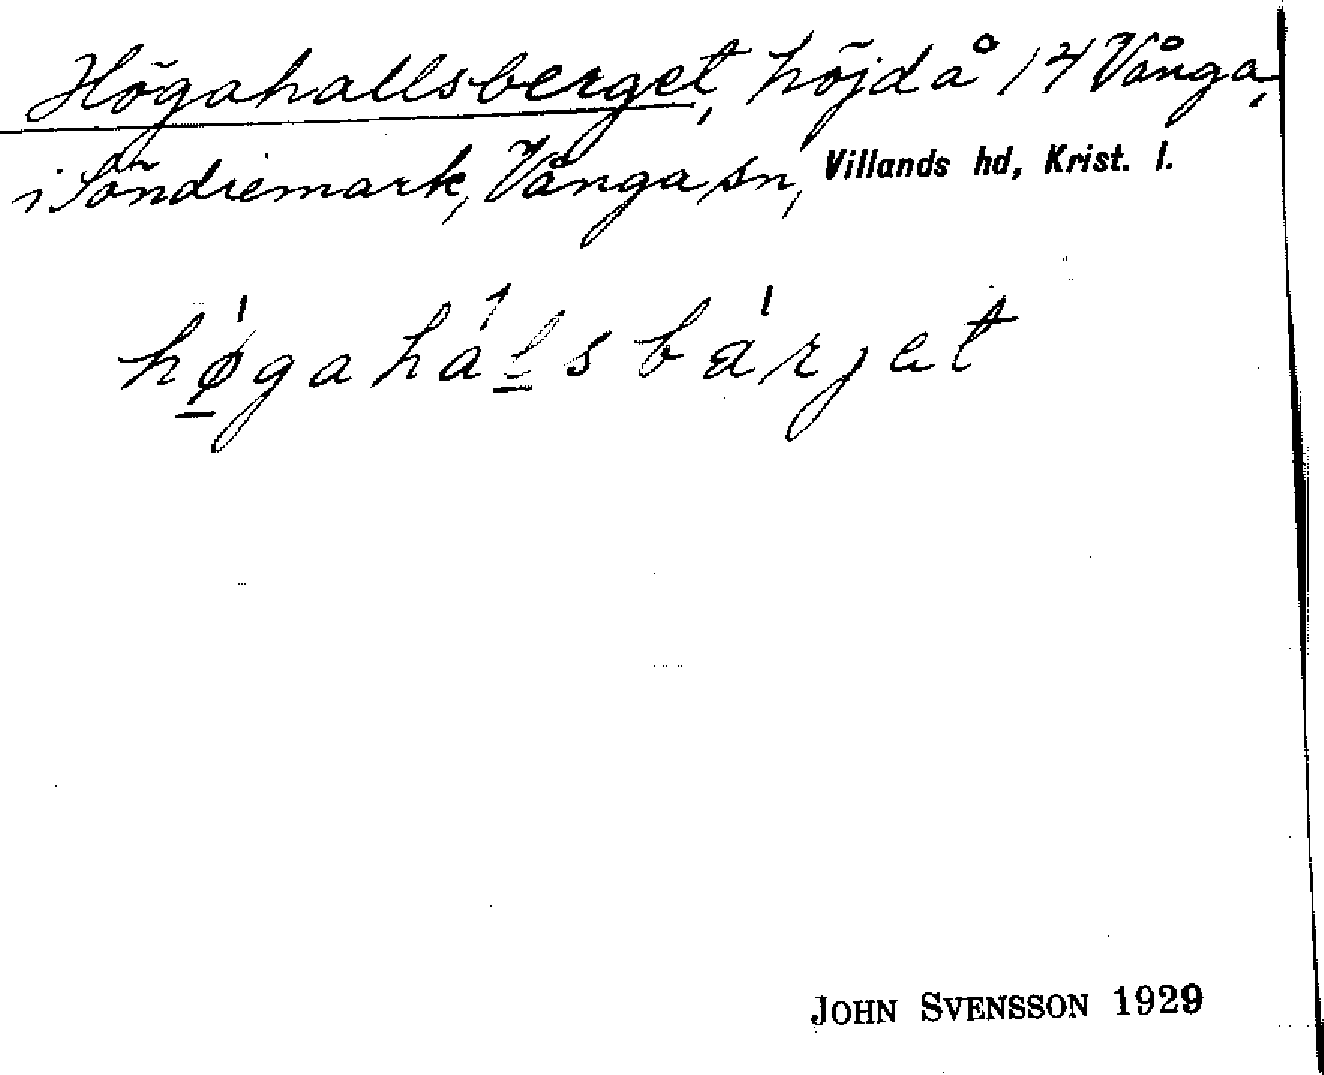 Högahallsberget, höjd å 14 Vånga,
i Söndremark, Vånga sn, Villands hd, Krist. l.
høgahálsbárjet
JOHN SVENSSON 1929